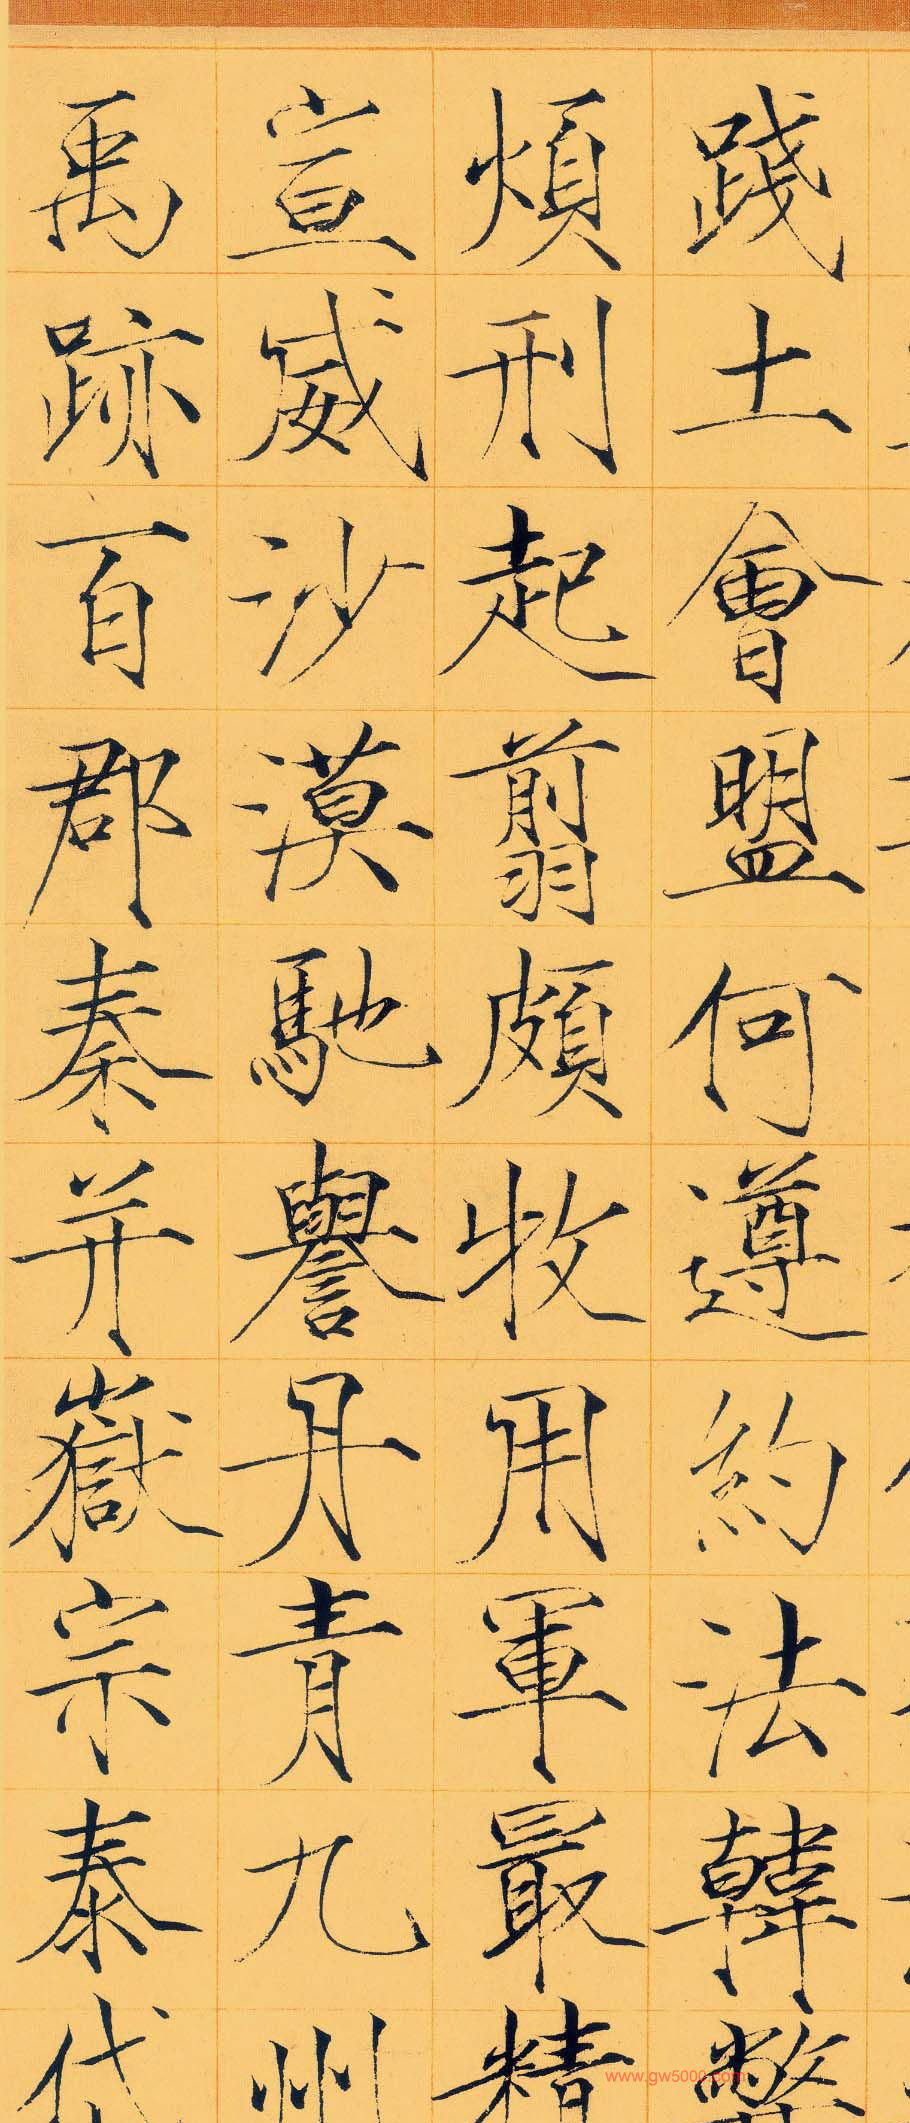 踐土會盟何遵約法韓弊
煩刑起翦頗牧用軍最精
宣威沙漠馳譽丹青九州
禹跡百郡秦并嶽宗泰岱
www.gw5000.com